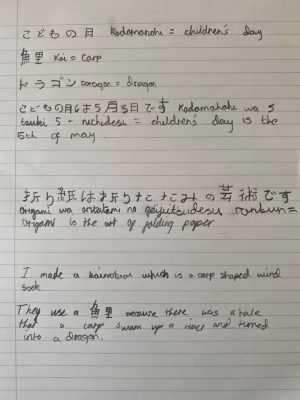 こどもの月 Kodomanohi = children's day
魚里 Koi = Carp
ドラゴン Doragon = dragon
こどもの月は5月5日です Kodomanohi wa 5
tsuki 5 - nichidesu = children's day is the
5th of may
折り紙は折りたたみの芸術です
Origami wa oritatami no geijutsudesu =
Origami is the art of folding paper
I made a koinobori which is a carp shaped wind
sock
They use a 魚里 because there was a tale
that a carp swam up a river and turned
into a dragon.